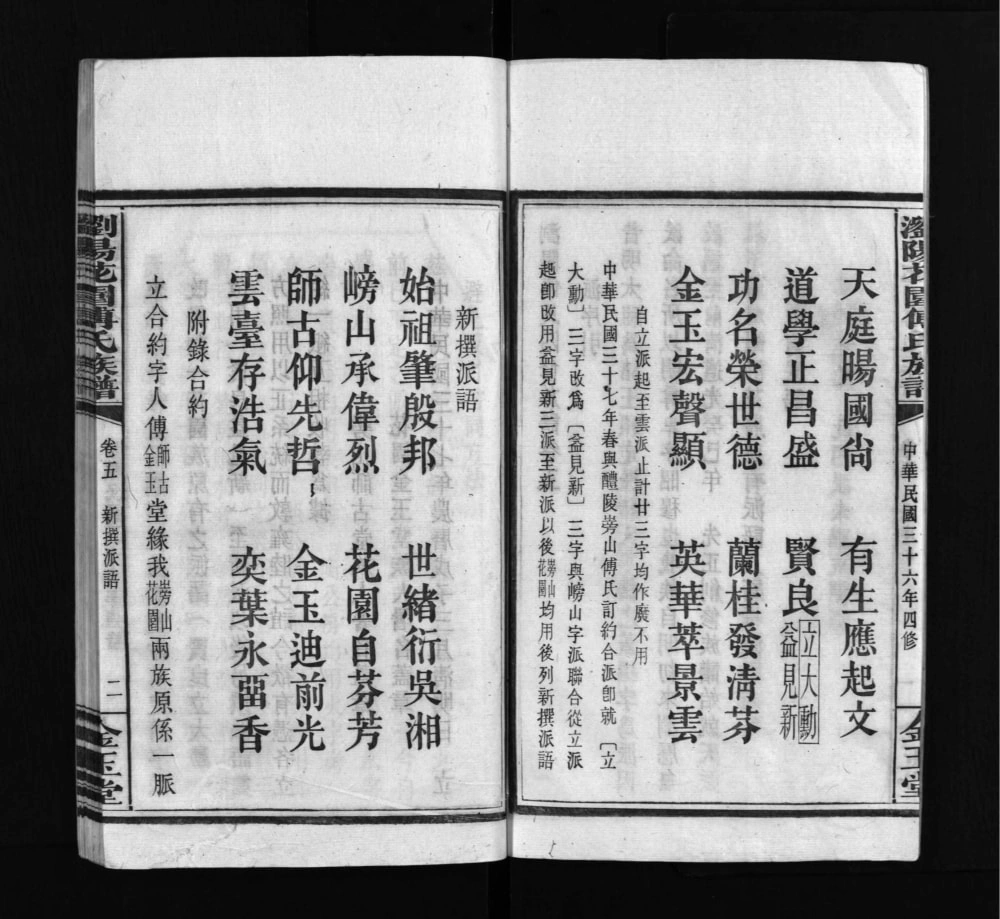 瀏陽花園傅氏族譜
中華民國三十六年四修
金玉堂
天庭暘國尙 有生應起文
道學正昌盛 賢良立大動益見新
功名榮世德 蘭桂發淸芬
金玉宏聲顯 英華萃景雲
自立派起至雲派止計廿三字均作廣不用
中華民國三十七年春與醴陵嵭山傅氏訂約合派卽就〔立
大動〕三字改爲〔益見新〕三字與嵭山字派聯合從立派
起卽改用益見新三派至新派以後嵭山花園均用後列新撰派語
新撰派語
始祖肇殷邦 世緒衍吳湘
嵭山承偉烈 花園自芬芳
師古仰先哲 金玉迪前光
雲臺存浩氣 奕葉永畱香
附錄合約
立合約字人傅師古金玉堂緣我嵭山花園兩族原係一脈
瀏陽花園傅氏族譜
卷五 新撰派語
二
金玉堂